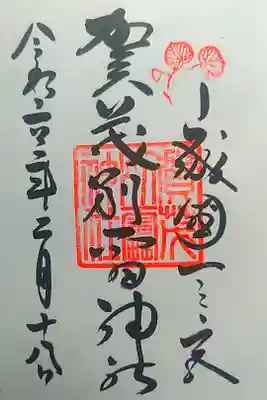 山城國一之宮
賀茂別雷神社
令和年二月十八日